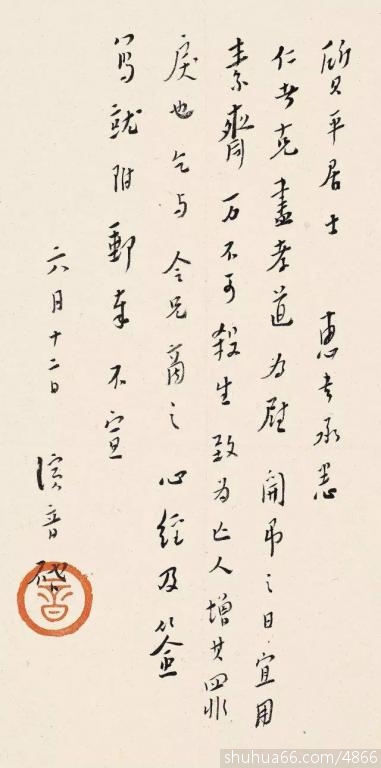 質平居士 惠書承悉
仁者克盡孝道為慰 開弔之日宜用
素齋万不可殺生致為亡人增其罪
戾也乞与令兄商之 心經及簽
寫就附郵奉不宣
六月十二日 演音 啓
shuhua66.com/4866